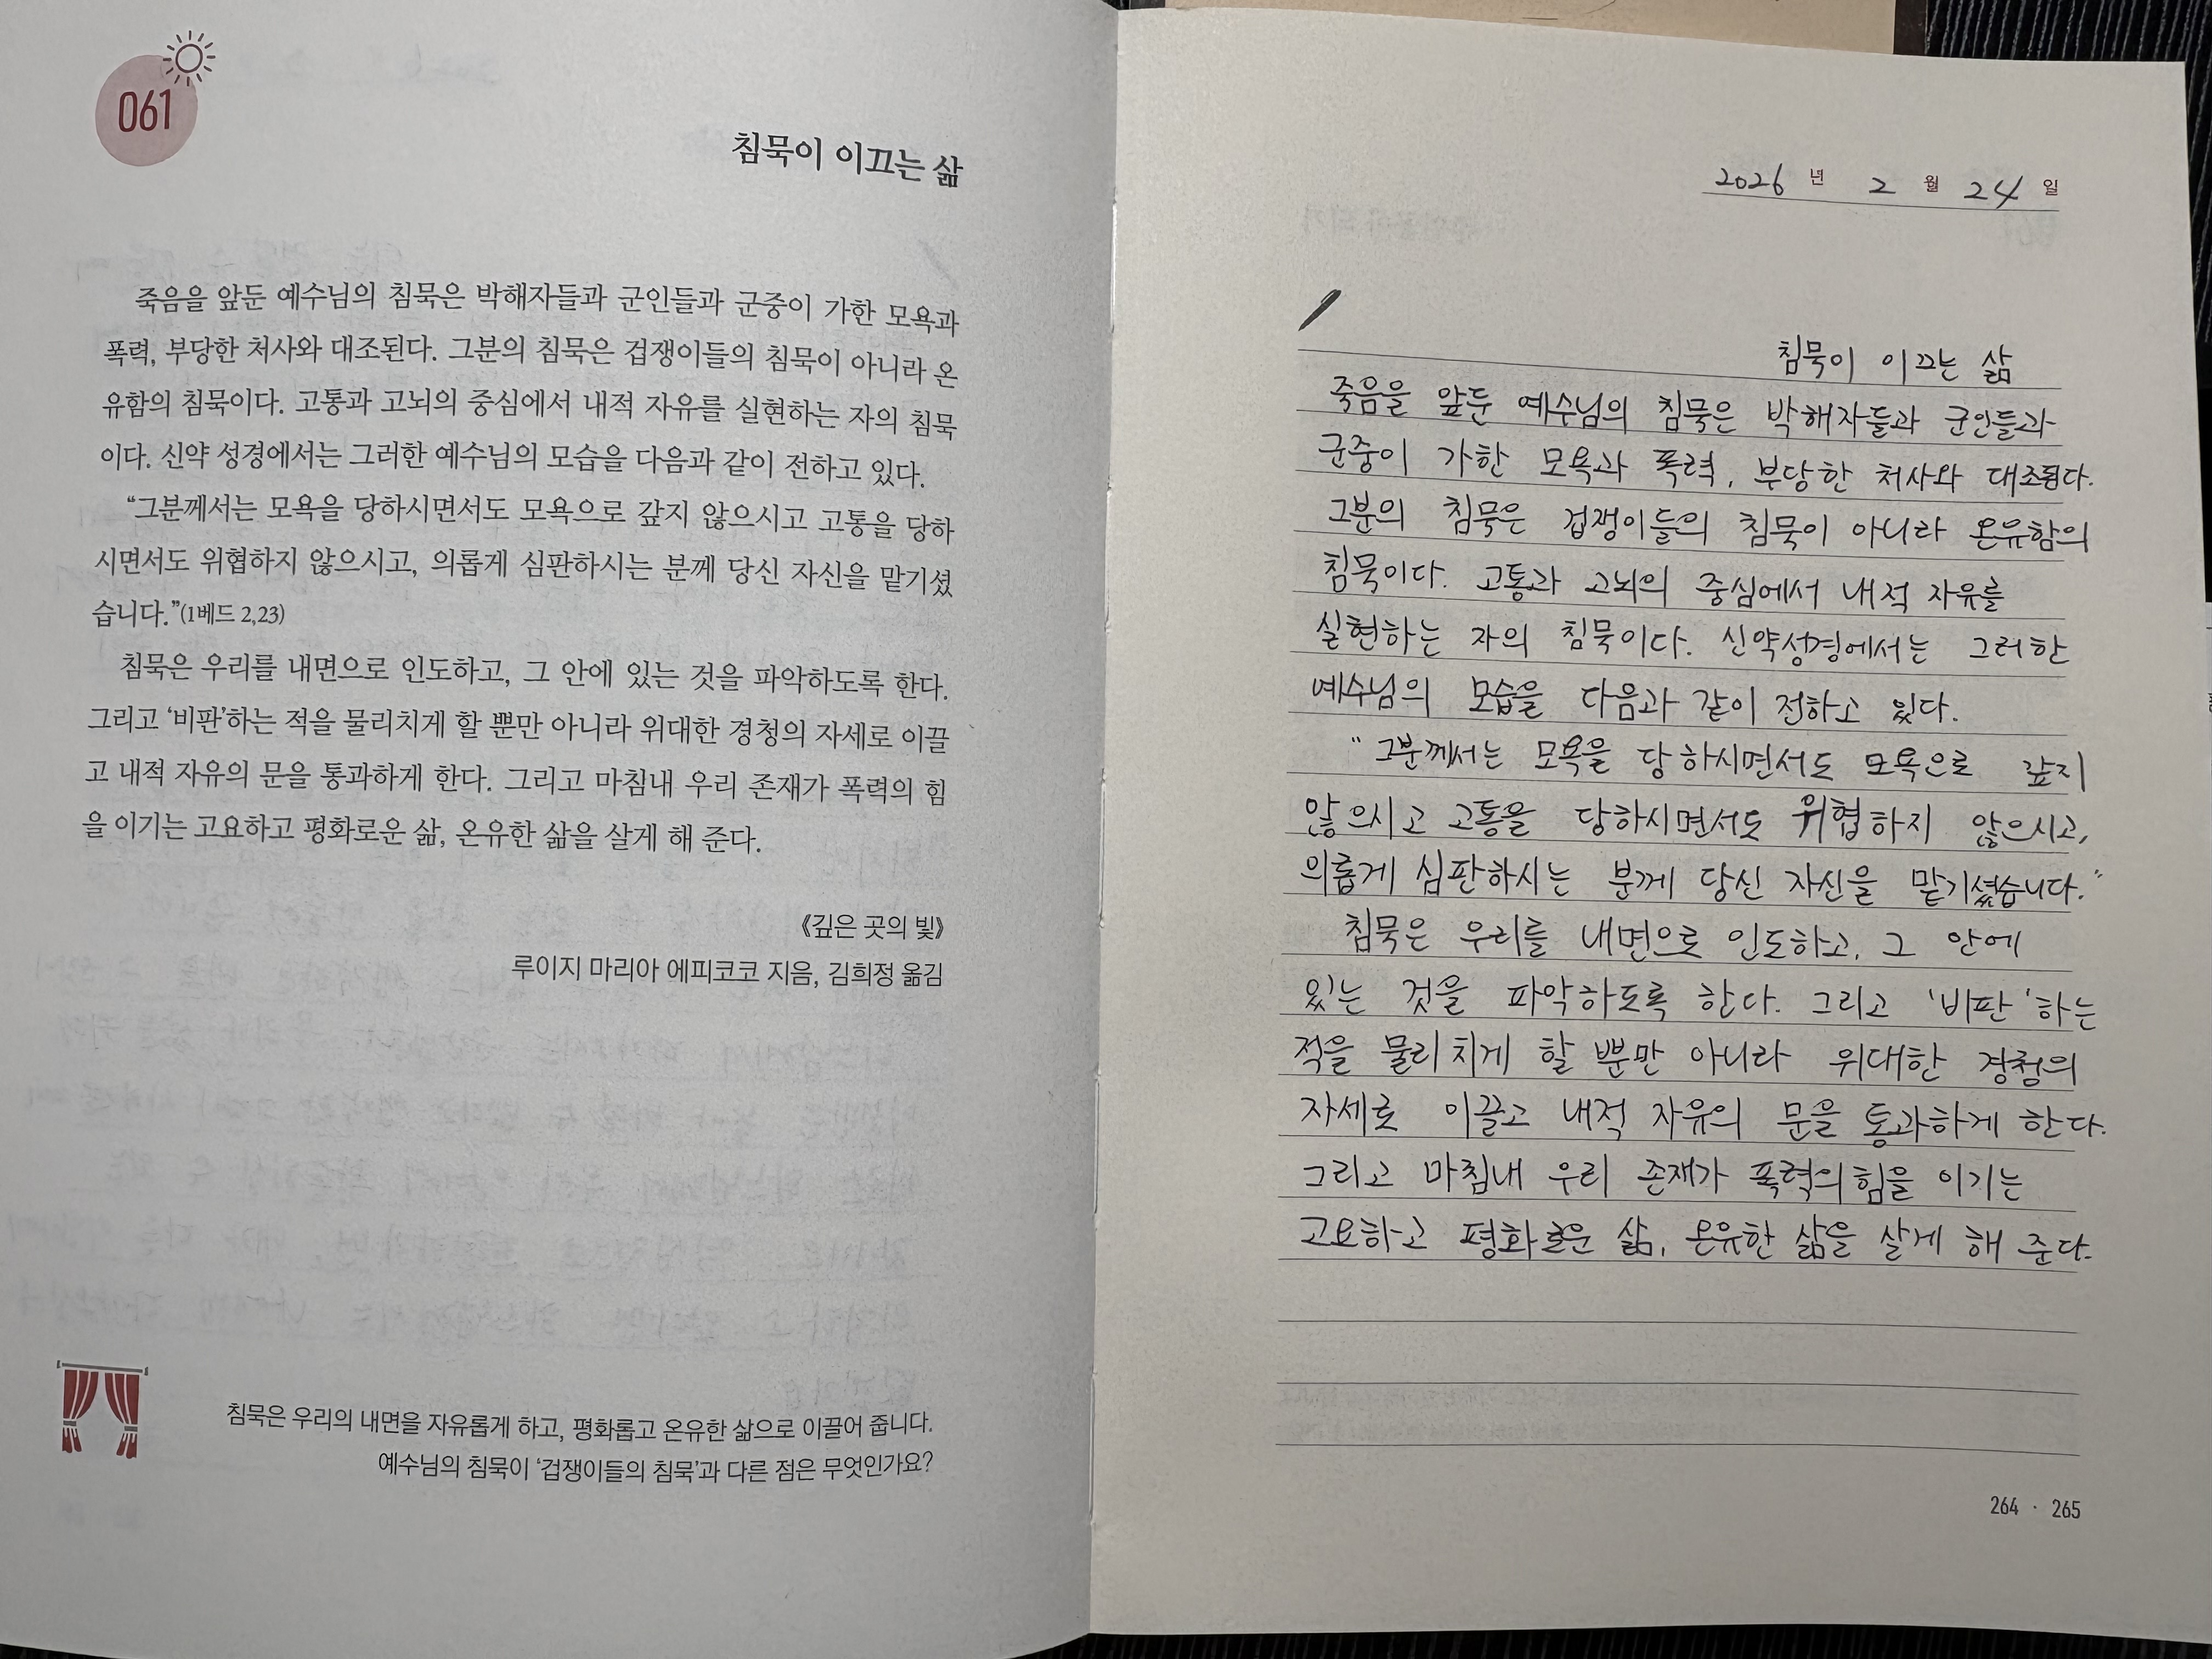 061
침묵이 이끄는 삶
죽음을 앞둔 예수님의 침묵은 박해자들과 군인들과 군중이 가한 모욕과
폭력, 부당한 처사와 대조된다. 그분의 침묵은 겁쟁이들의 침묵이 아니라 온
유함의 침묵이다. 고통과 고뇌의 중심에서 내적 자유를 실현하는 자의 침묵
이다. 신약 성경에서는 그러한 예수님의 모습을 다음과 같이 전하고 있다.
“그분께서는 모욕을 당하시면서도 모욕으로 갚지 않으시고 고통을 당하
시면서도 위협하지 않으시고, 의롭게 심판하시는 분께 당신 자신을 맡기셨
습니다.”(1베드 2,23)
침묵은 우리를 내면으로 인도하고, 그 안에 있는 것을 파악하도록 한다.
그리고 ‘비판’하는 적을 물리치게 할 뿐만 아니라 위대한 경청의 자세로 이끌
고 내적 자유의 문을 통과하게 한다. 그리고 마침내 우리 존재가 폭력의 힘
을 이기는 고요하고 평화로운 삶, 온유한 삶을 살게 해 준다.
《깊은 곳의 빛》
루이지 마리아 에피코코 지음, 김희정 옮김
침묵은 우리의 내면을 자유롭게 하고, 평화롭고 온유한 삶으로 이끌어 줍니다.
예수님의 침묵이 ‘겁쟁이들의 침묵’과 다른 점은 무엇인가요?
2026 년 2 월 24 일
침묵이 이끄는 삶
죽음을 앞둔 예수님의 침묵은 박해자들과 군인들과
군중이 가한 모욕과 폭력, 부당한 처사와 대조된다.
그분의 침묵은 겁쟁이들의 침묵이 아니라 온유함의
침묵이다. 고통과 고뇌의 중심에서 내적 자유를
실현하는 자의 침묵이다. 신약성경에서는 그러한
예수님의 모습을 다음과 같이 전하고 있다.
“그분께서는 모욕을 당하시면서도 모욕으로 갚지
않으시고 고통을 당하시면서도 위협하지 않으시고,
의롭게 심판하시는 분께 당신 자신을 맡기셨습니다.”
침묵은 우리를 내면으로 인도하고, 그 안에
있는 것을 파악하도록 한다. 그리고 ‘비판’하는
적을 물리치게 할 뿐만 아니라 위대한 경청의
자세로 이끌고 내적 자유의 문을 통과하게 한다.
그리고 마침내 우리 존재가 폭력의 힘을 이기는
고요하고 평화로운 삶, 온유한 삶을 살게 해 준다.
264 · 265